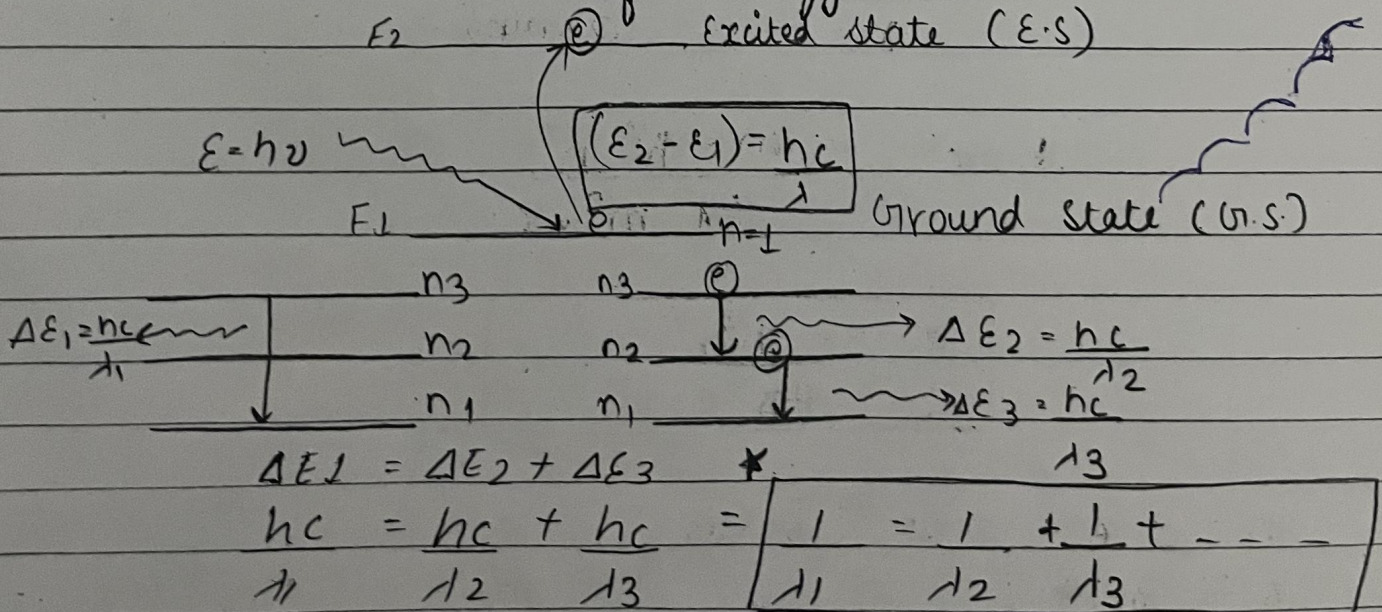 E2 e Excited state (E.S)
E=hν (E2-E1)=hc/λ
E1 n=1 Ground state (G.S.)
n3 n3 e
ΔE1=hc/λ1 n2 n2 e ΔE2 = hc/λ2
n1 n1 ΔE3 = hc/λ3
ΔE1 = ΔE2 + ΔE3 *
hc/λ1 = hc/λ2 + hc/λ3 = 1/λ1 = 1/λ2 + 1/λ3 + - - - -